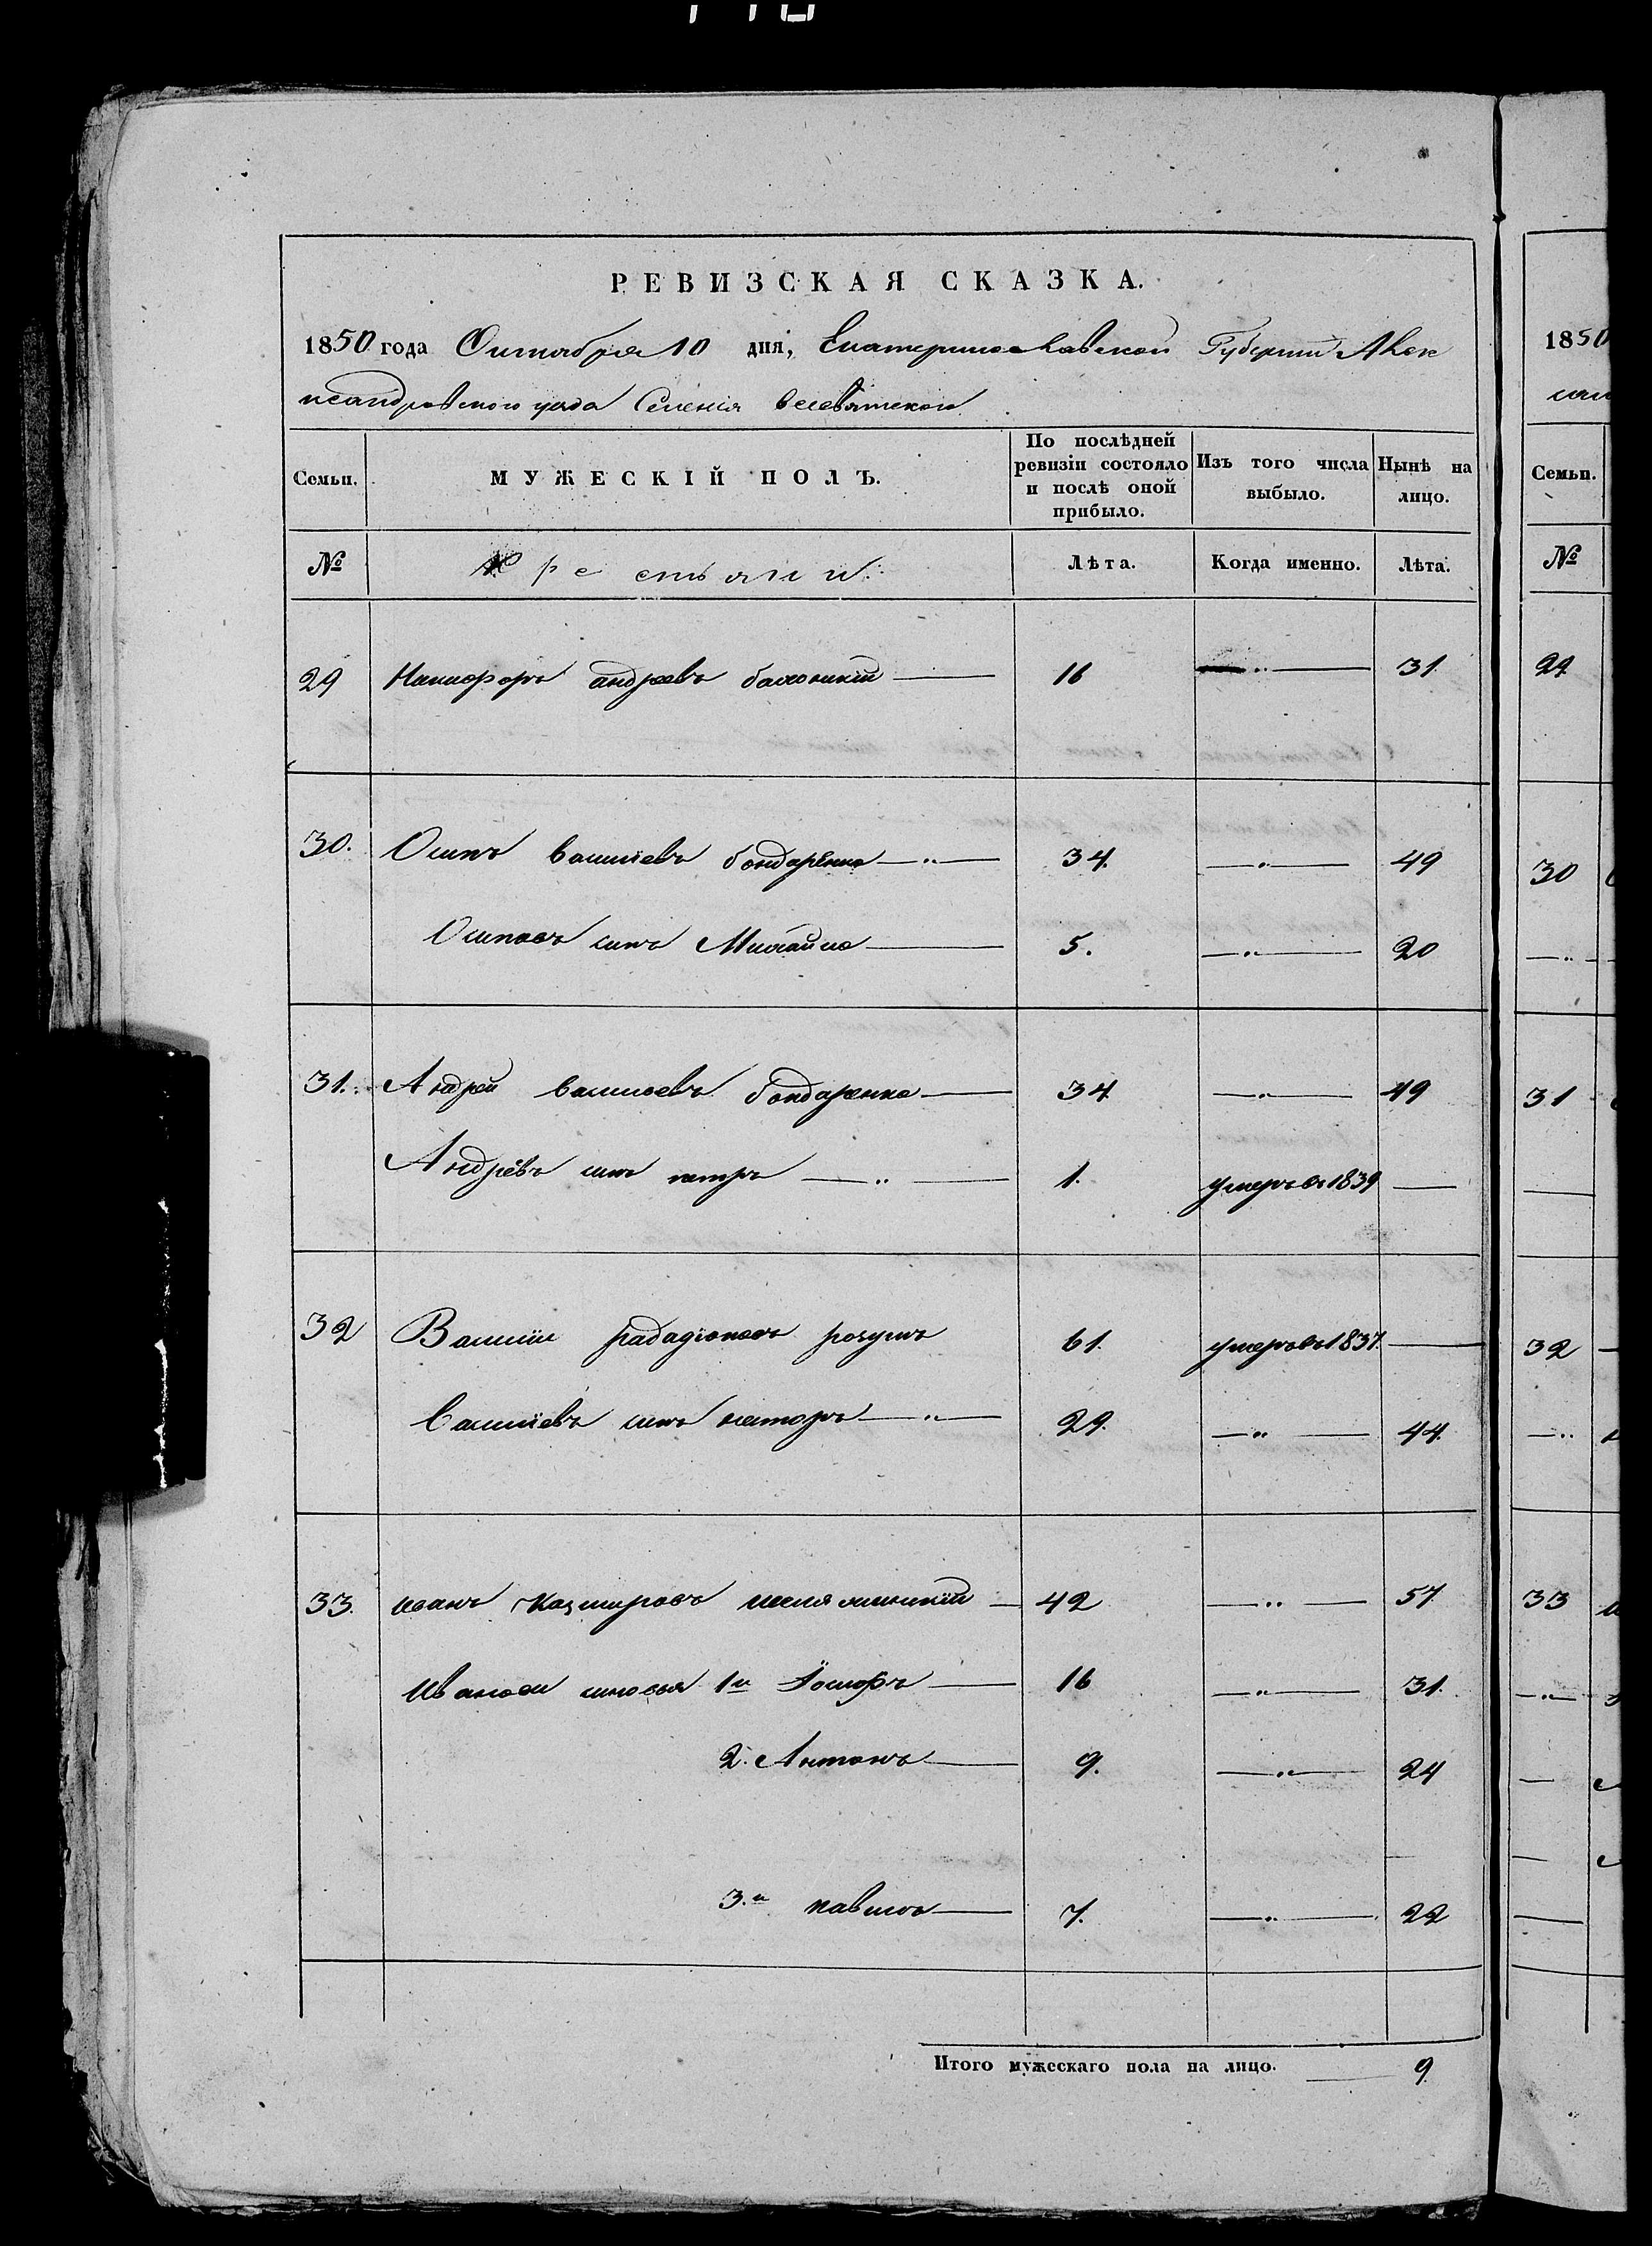 РЕВИЗСКАЯ СКАЗКА.
1850 года Октября 10 дня, Екатеринославской Губерніи Алек
ксандровского уезда Селенія всесвятского
Семьи. МУЖЕСКІЙ ПОЛЪ. По послѣдней ревизіи состояло и послѣ оной прибыло. Изъ того числа выбыло. Нынѣ на лицо.
№ Крестьяни. Лѣта. Когда именно. Лѣта.
29 Никифоръ андреевъ 16 — „ — 31
30. Осипъ васипіевъ бондаренко — „ — 34. — „ — 49
Осиповъ синъ Михайло — 5. — „ — 20
31. Андрей васильевъ бондаренко — 34 — „ — 49
Андреевъ синъ петръ — „ — 1. умеръ въ 1839 —
32 Василій рададіоновъ розумъ 61. умеръ въ 1837. —
Василіевъ синъ несторъ — „ — 29. — „ — 44.
33. иванъ Казмировъ — 42 — „ — 57
Ивановы синовья 1й Іосифъ — 16 — „ — 31.
2. Антонъ — 9. — „ — 24
3.й павилъ — 7. — „ — 22
Итого мужескаго пола на лицо. — 9.
1850
Семьи.
№
29
30
31
32
33